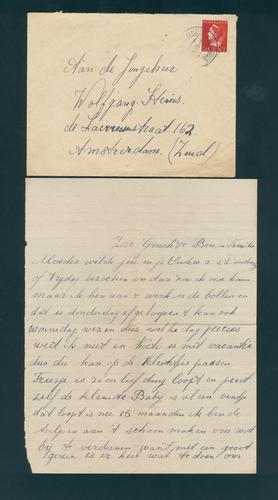 Aan de Jongeheer
Wolfgang Heins.
de straat 162
Amsterdam. (Zuid)
Zeer Geacht Ben en Familie
Moeder wilde jou en je Ouders a.s. Dinsdag
of Vrydag bezoeken en dan zou ik
maar ik ben aan t werk in de bollen en
dat is donderdag afgeloopen & kan ook
woensdag wezen dus welke dag precies
weet ik niet en is met vacantie
dus die kan op de passen
is zoon lief ding loopt en praat
zelf de kleinste Baby is al een
dat loopt is nu 16 maanden ik ben de
tulpen aan t schoon maken om wat
bij te verdienen want met een groot
gezin is er heel wat te doen om